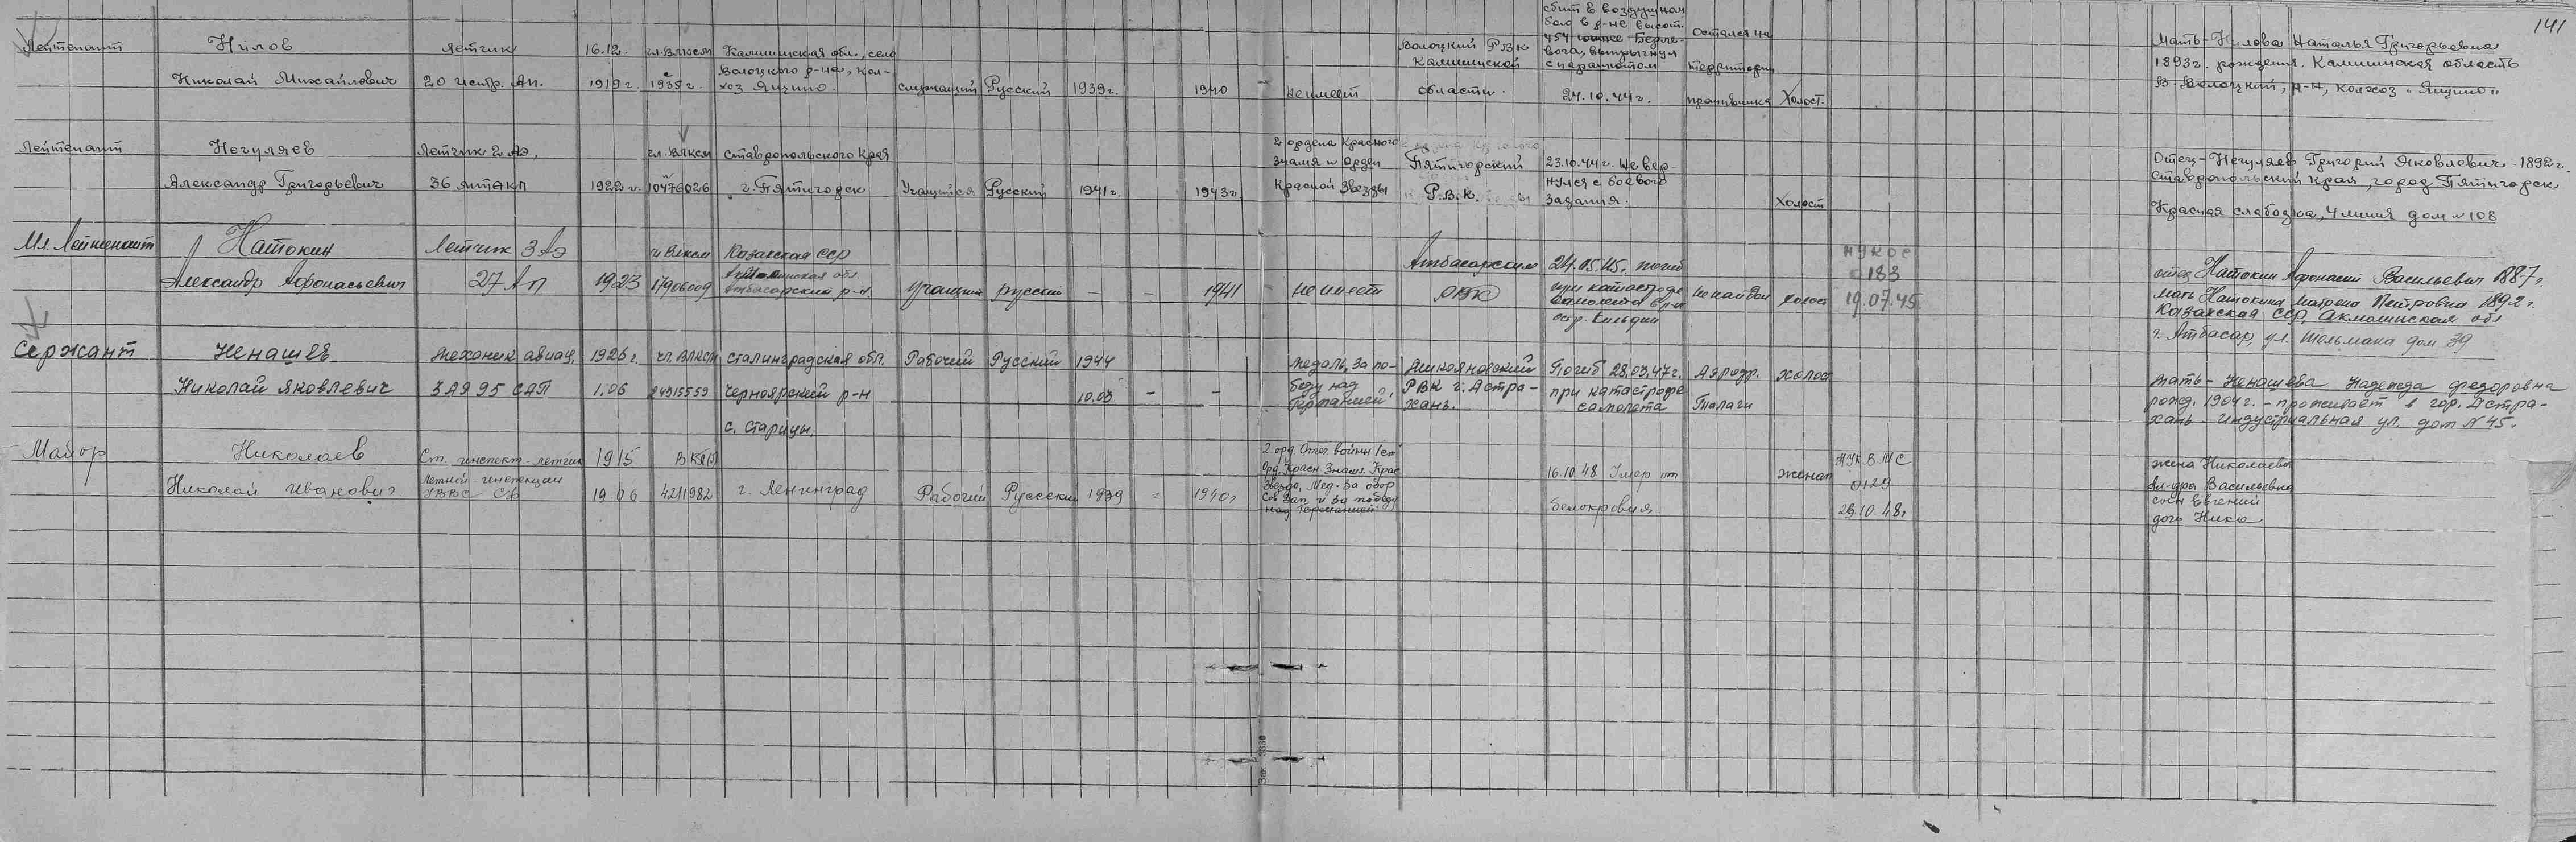 141
Лейтенант
Нилов
Николай Михайлович
летчик
20 истр. АП.
16.12.
1919 г.
чл. ВЛКСМ
с 1935 г.
Калининская обл., село
Волоцкого р-на, кол-
хоз Яицино.
служащий
Русский
1939 г.
1940
не имеет
Волоцкий РВК
Калининской
области.
сбит в воздушном
бою в р-не высот.
454 южнее Берле-
вога, выпрыгнул
с парашютом
24.10.44 г.
Остался на
территории
противника
Холост.
Мать - Нилова Наталья Григорьевна
1893 г. рождения. Калининская область
В. Волоцкий, р-н, колхоз „Яицино"
Лейтенант
Негуляев
Александр Григорьевич
Летчик 2 АЭ,
36 мтАКП
1922 г.
чл. ВЛКСМ
10476026
Ставропольского края
г. Пятигорск
Учащийся
Русский
1941 г.
1943 г.
2 ордена Красного
знамя и Орден
Красной звезды
Пятигорский
Р.В.К.
23.10.44 г. не вер-
нулся с боевого
задания.
Холост
Отец - Негуляев Григорий Яковлевич - 1892 г.
Ставропольский край, город Пятигорск
Красная слабодка, 4 линия дом № 108
Мл. Лейтенант
Натокин
Александр Афонасьевич
Летчик 3 АЭ
27 АП
1923
чл ВЛКСМ
17906009
Казахская ССР
Акмолинская обл.
Атбасарский р-н
учащийся
русский
—
—
1941
не имеет
Атбасарским
РВК
24.05.45. погиб
при катастрофе
самолета в р-не
остр. Кильдин
не найден
холост
НУКОС
0183
19.07.45.
отец Натокин Афонасий Васильевич 1887 г.
мать Натокина Матрена Петровна 1892 г.
Казахская ССР, Акмолинская обл
г. Атбасар, ул. Тельмана дом 39
Сержант
Ненашев
Николай Яковлевич
Механик авиац.
3 АЭ 95 САП
1926 г.
1.06
чл. ВЛКСМ
24915559
Сталинградская обл.
Черноярский р-н
с. Старицы.
Рабочий
Русский
1944
10.03
—
—
Медаль „За по-
беду над
Германией"
Микояновский
РВК г. Астра-
хань.
Погиб 28.03.47 г.
при катастрофе
самолета
Аэродр.
Талаги
холост
Мать - Ненашева Надежда Федоровна
рожд. 1904 г. - проживает в гор. Астра-
хань - Индустриальная ул. дом № 45.
Майор
Николаев
Николай Иванович
Ст. инспект.-летчик
летной инспекции
УВВС СФ
1915
19.06
ВКП(б)
4211982
г. Ленинград
Рабочий
Русский
1939
-
1940 г
2 орд. Отеч. войны 1 ст
Орд. Красн. Знамя. Крас
Звезда, Мед. За обор
Сов Зап. и За победу
над Германией
16.10.48 Умер от
белокровия
женат
НУК ВМС
0129
29.10.48 г
жена Николаева
Ал-дра Васильевна
сын Евгений
дочь Нина
Зак. 3330